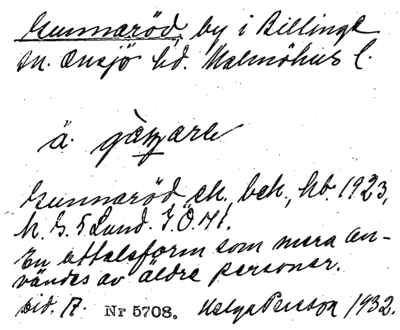 Gunnaröd, by i Billinge
sn. Onsjö hd. Malmöhus l.
ä.
Gunnaröd ek. bek., hb. 1923,
En uttalsform som mera an-
vändes av äldre personer.
sid. R. Nr 5708. Helga Persson 1932.